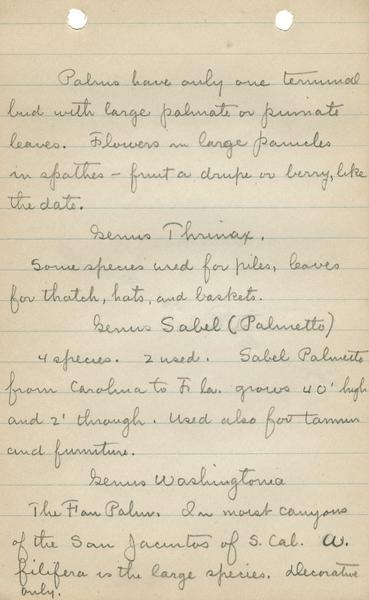 Palms have only one terminal
bud with large palmate or pinnate
leaves. Flowers in large panicles
in spathes - fruit a drupe or berry, like
the date.
Genus Thrinax.
Some species used for piles, leaves
for thatch, hats, and baskets.
Genus Sabel (Palmetto)
4 species. 2 used. Sabel Palmetto
from Carolina to Fla. grows 40' high
and 2' through. Used also for tannin
and furniture.
Genus Washingtonia
The Fan Palm. In moist canyons
of the San Jacintos of S. Cal. W.
filifera is the large species. Decorative
only.